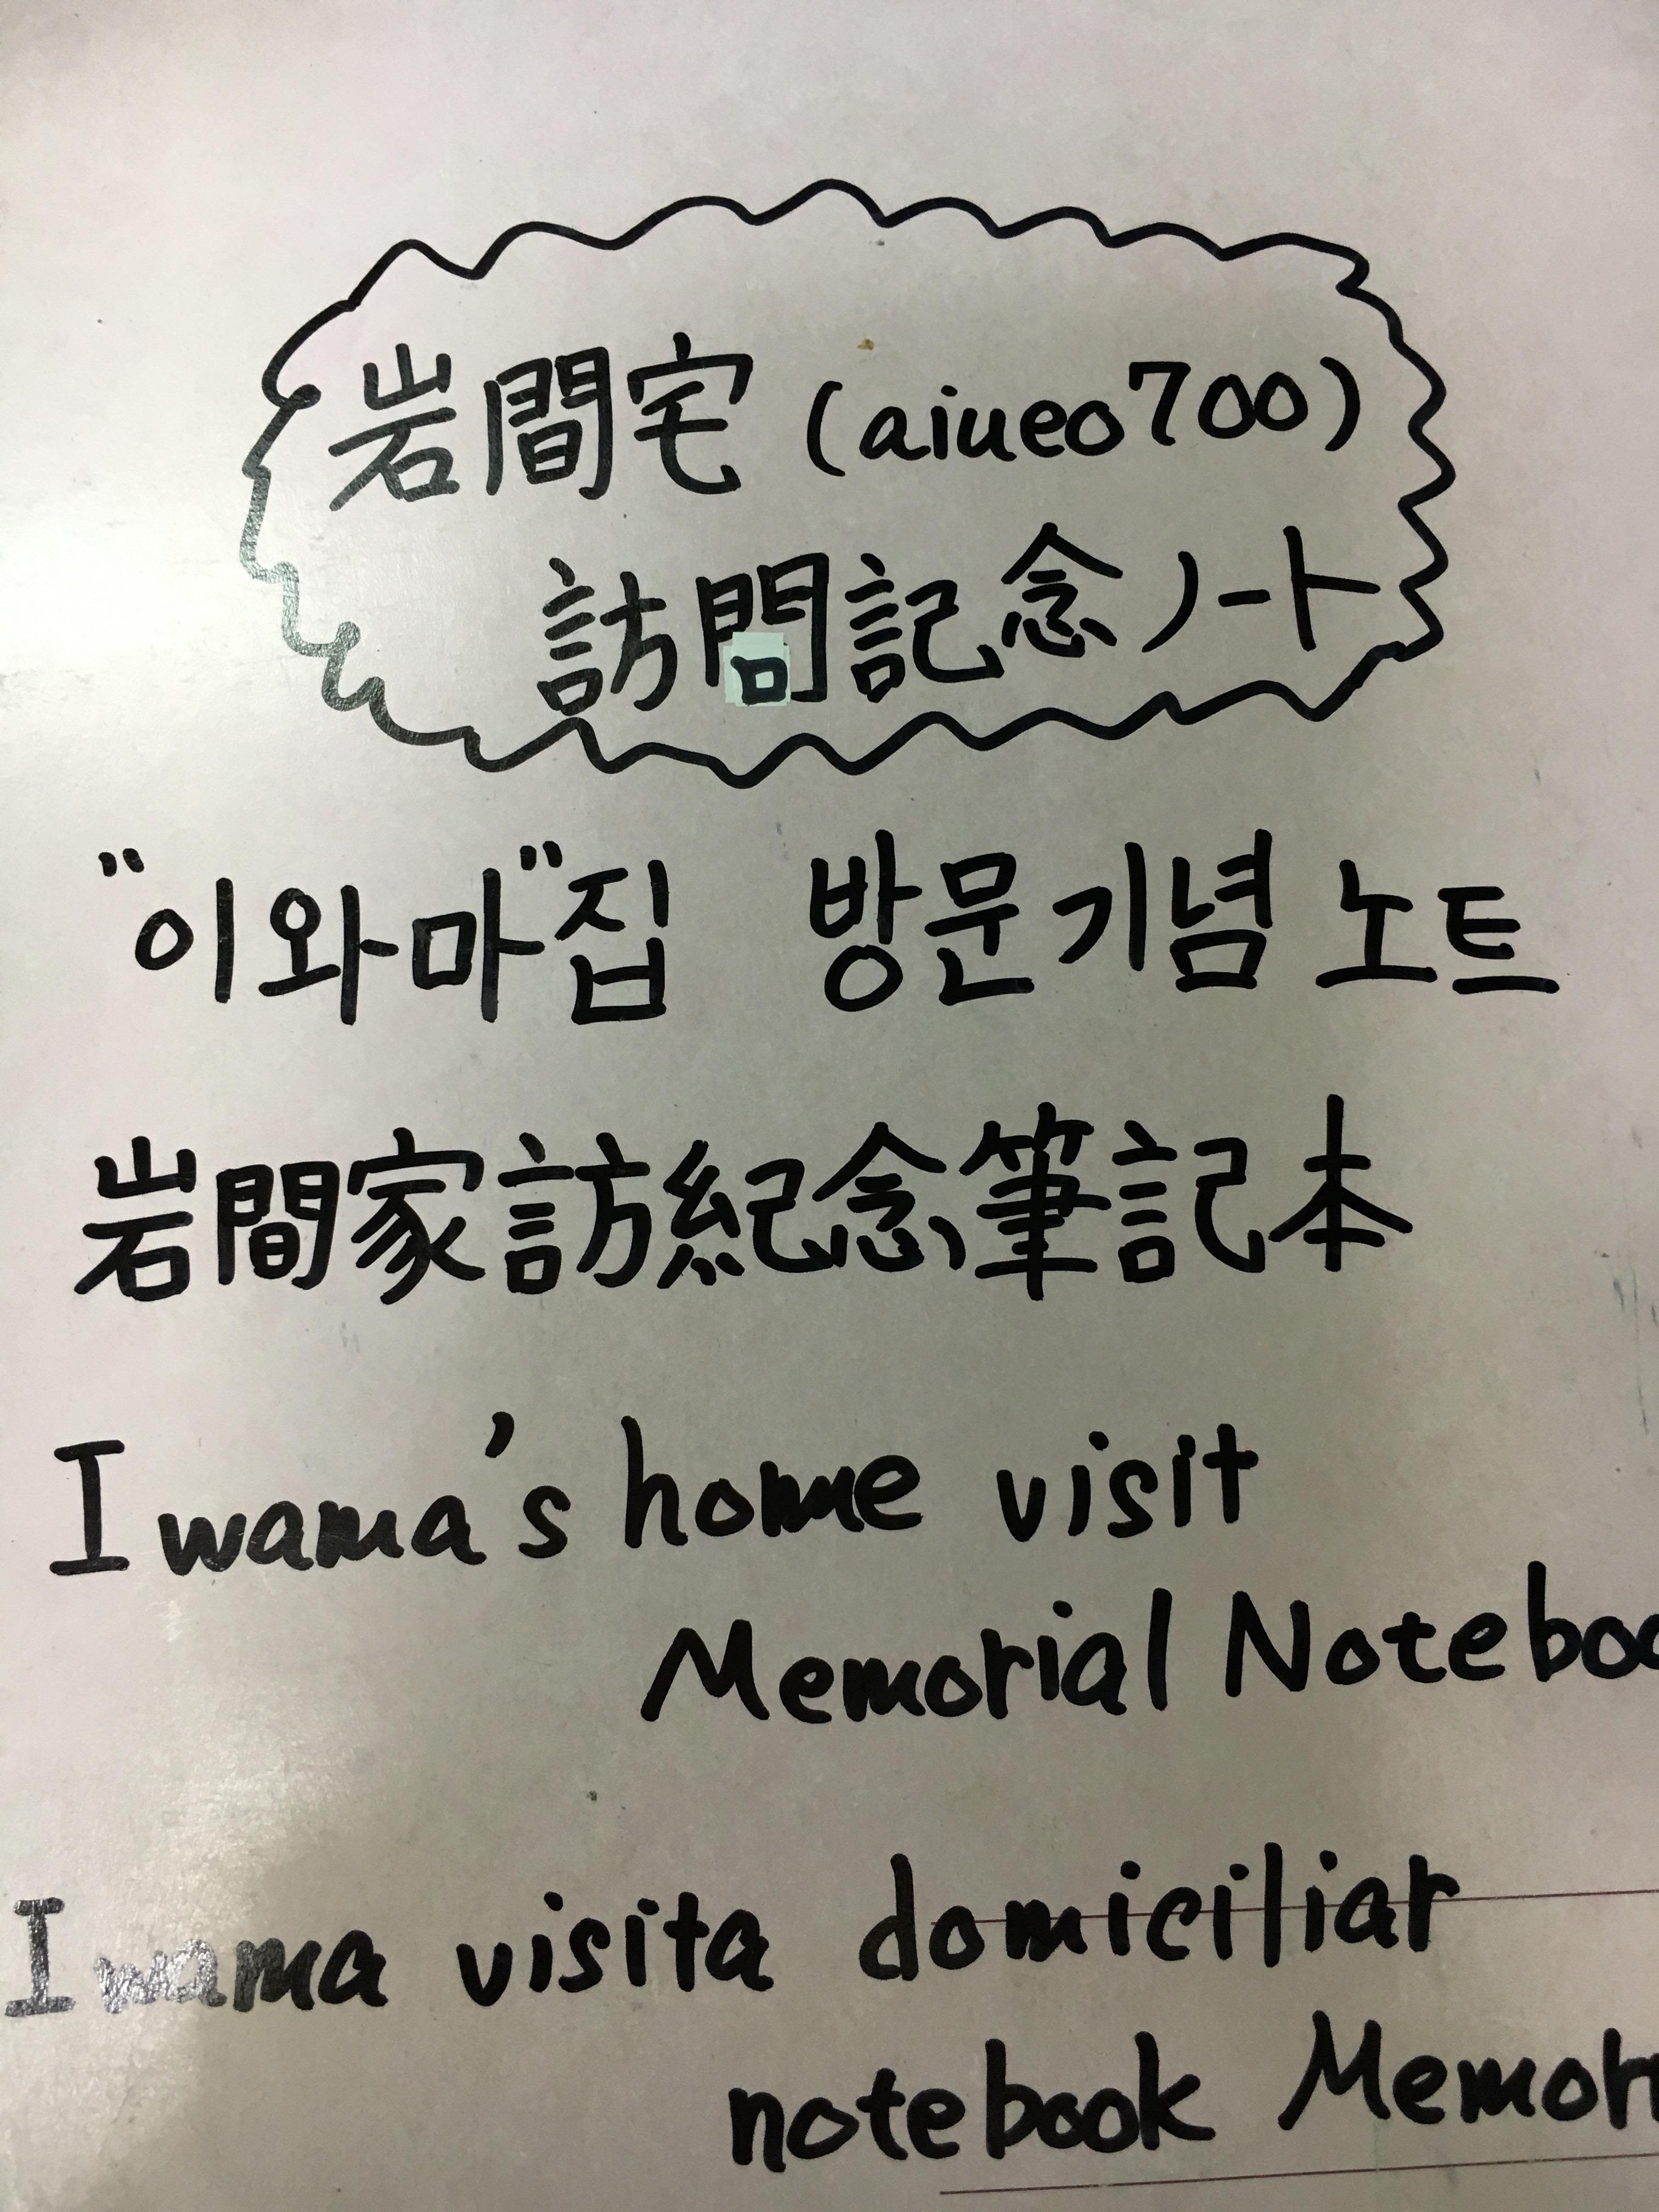 岩間宅 (aiueo700)
訪問記念ノート
"이와마"집 방문기념 노트
岩間家訪紀念筆記本
Iwama's home visit
Memorial Noteboo
Iwama visita domiciliar
notebook Memor